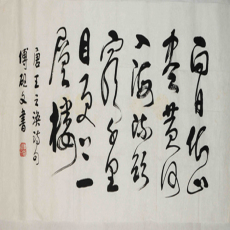 白日依山
盡黄河
入海流欲
窮千里
目更上一
層樓
唐王之涣诗句
傅文書